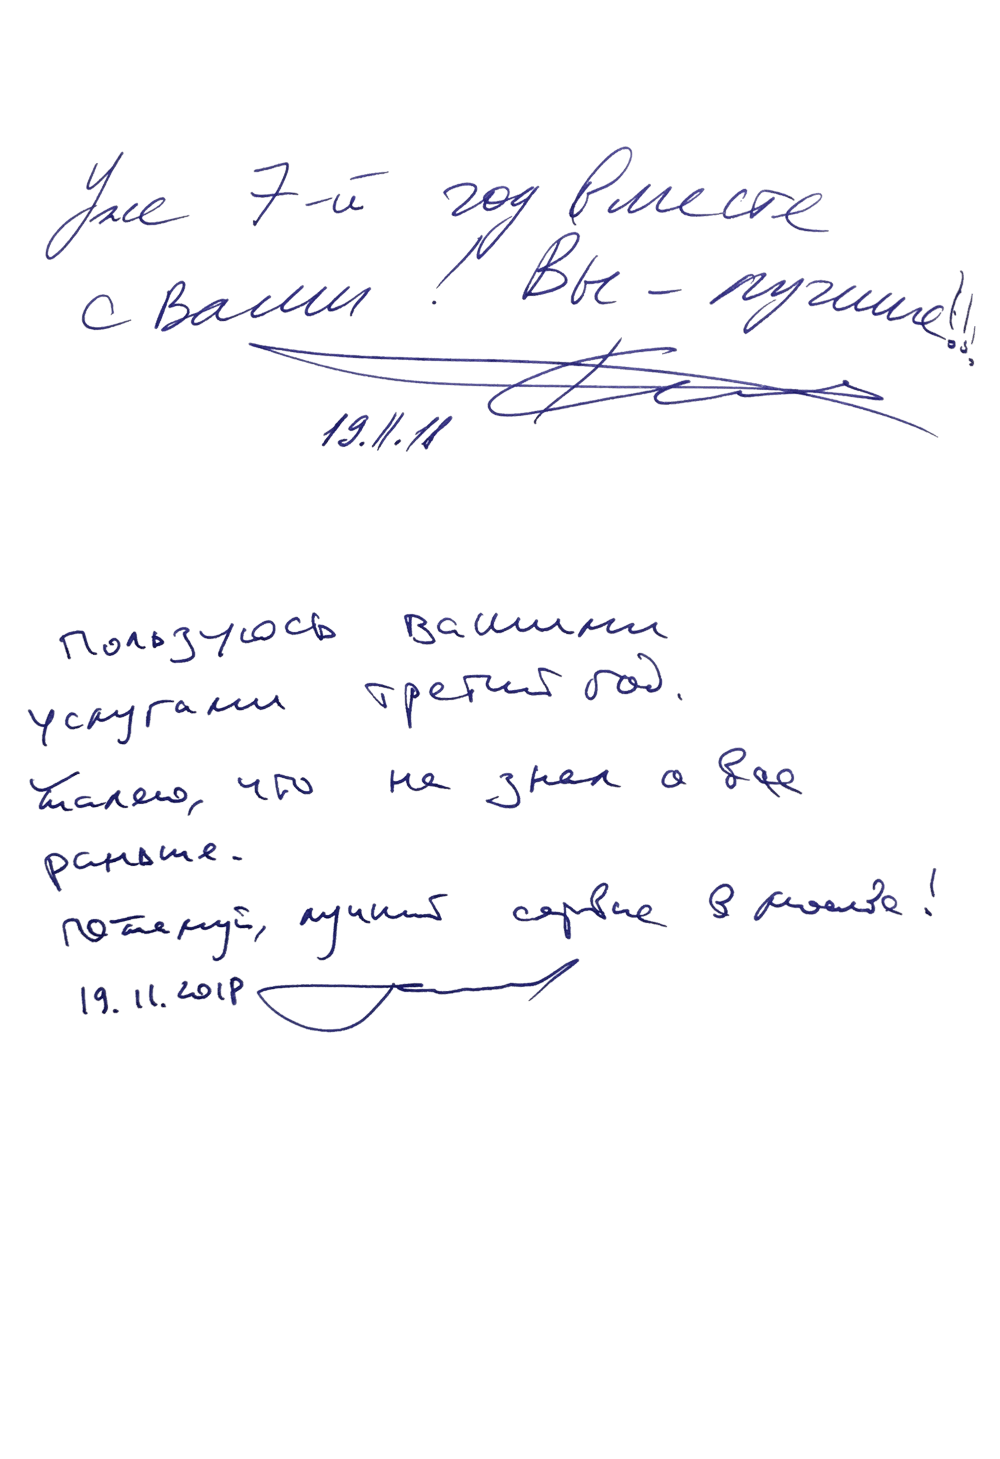 Уже 7-й год вместе
с Вами! Вы - лучшие!!!
19.11.18
Пользуюсь вашими
услугами третий год.
Жалею, что не знал о Вас
раньше.
Пожалуй, лучший сервис в Москве!
19.11.2018